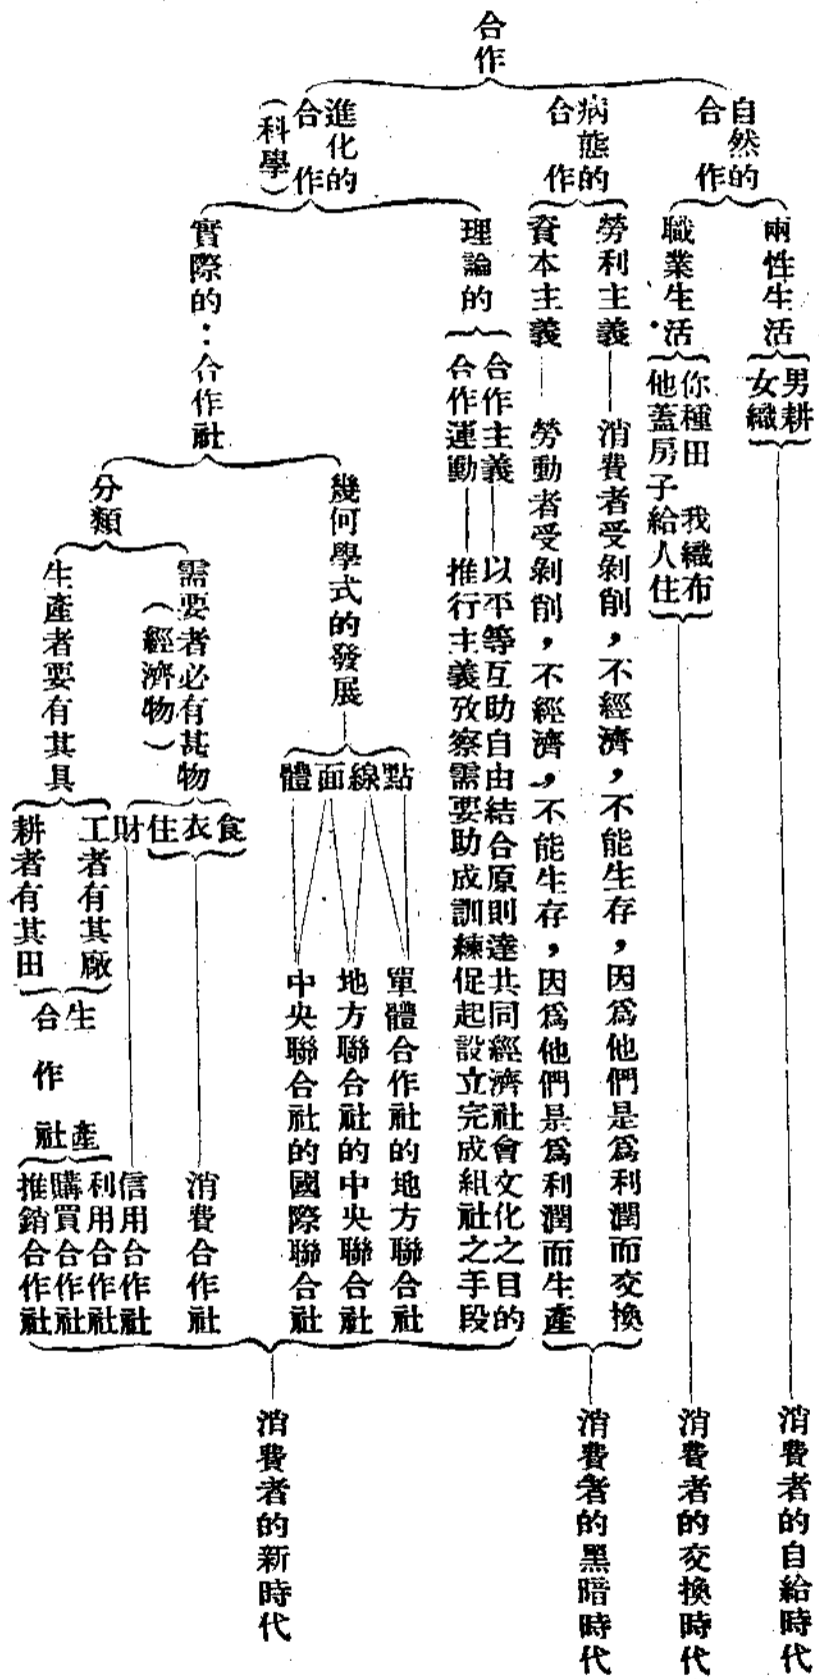 合作
自然的合作
兩性生活
男耕女織
消費者的自給時代
職業生活
你種田 我織布
他蓋房子給人住
消費者的交換時代
病態的合作
勞利主義
消費者受剝削，不經濟，不能生存，因爲他們是爲利潤而交換
資本主義
勞動者受剝削，不經濟，不能生存，因爲他們是爲利潤而生產
消費者的黑暗時代
進化的合作
（科學）
理論的
合作主義
以平等互助自由結合原則達共同經濟社會文化之目的
合作運動
推行主義攷察需要助成訓練促起設立完成組社之手段
實際的：合作社
幾何學式的發展
點線面體
單體合作社的地方聯合社
地方聯合社的中央聯合社
中央聯合社的國際聯合社
分類
需要者必有其物
（經濟物）
食衣住財
消費合作社
信用合作社
生產者要有其具
工者有其廠
耕者有其田
生產合作社
利用合作社
購買合作社
推銷合作社
消費者的新時代